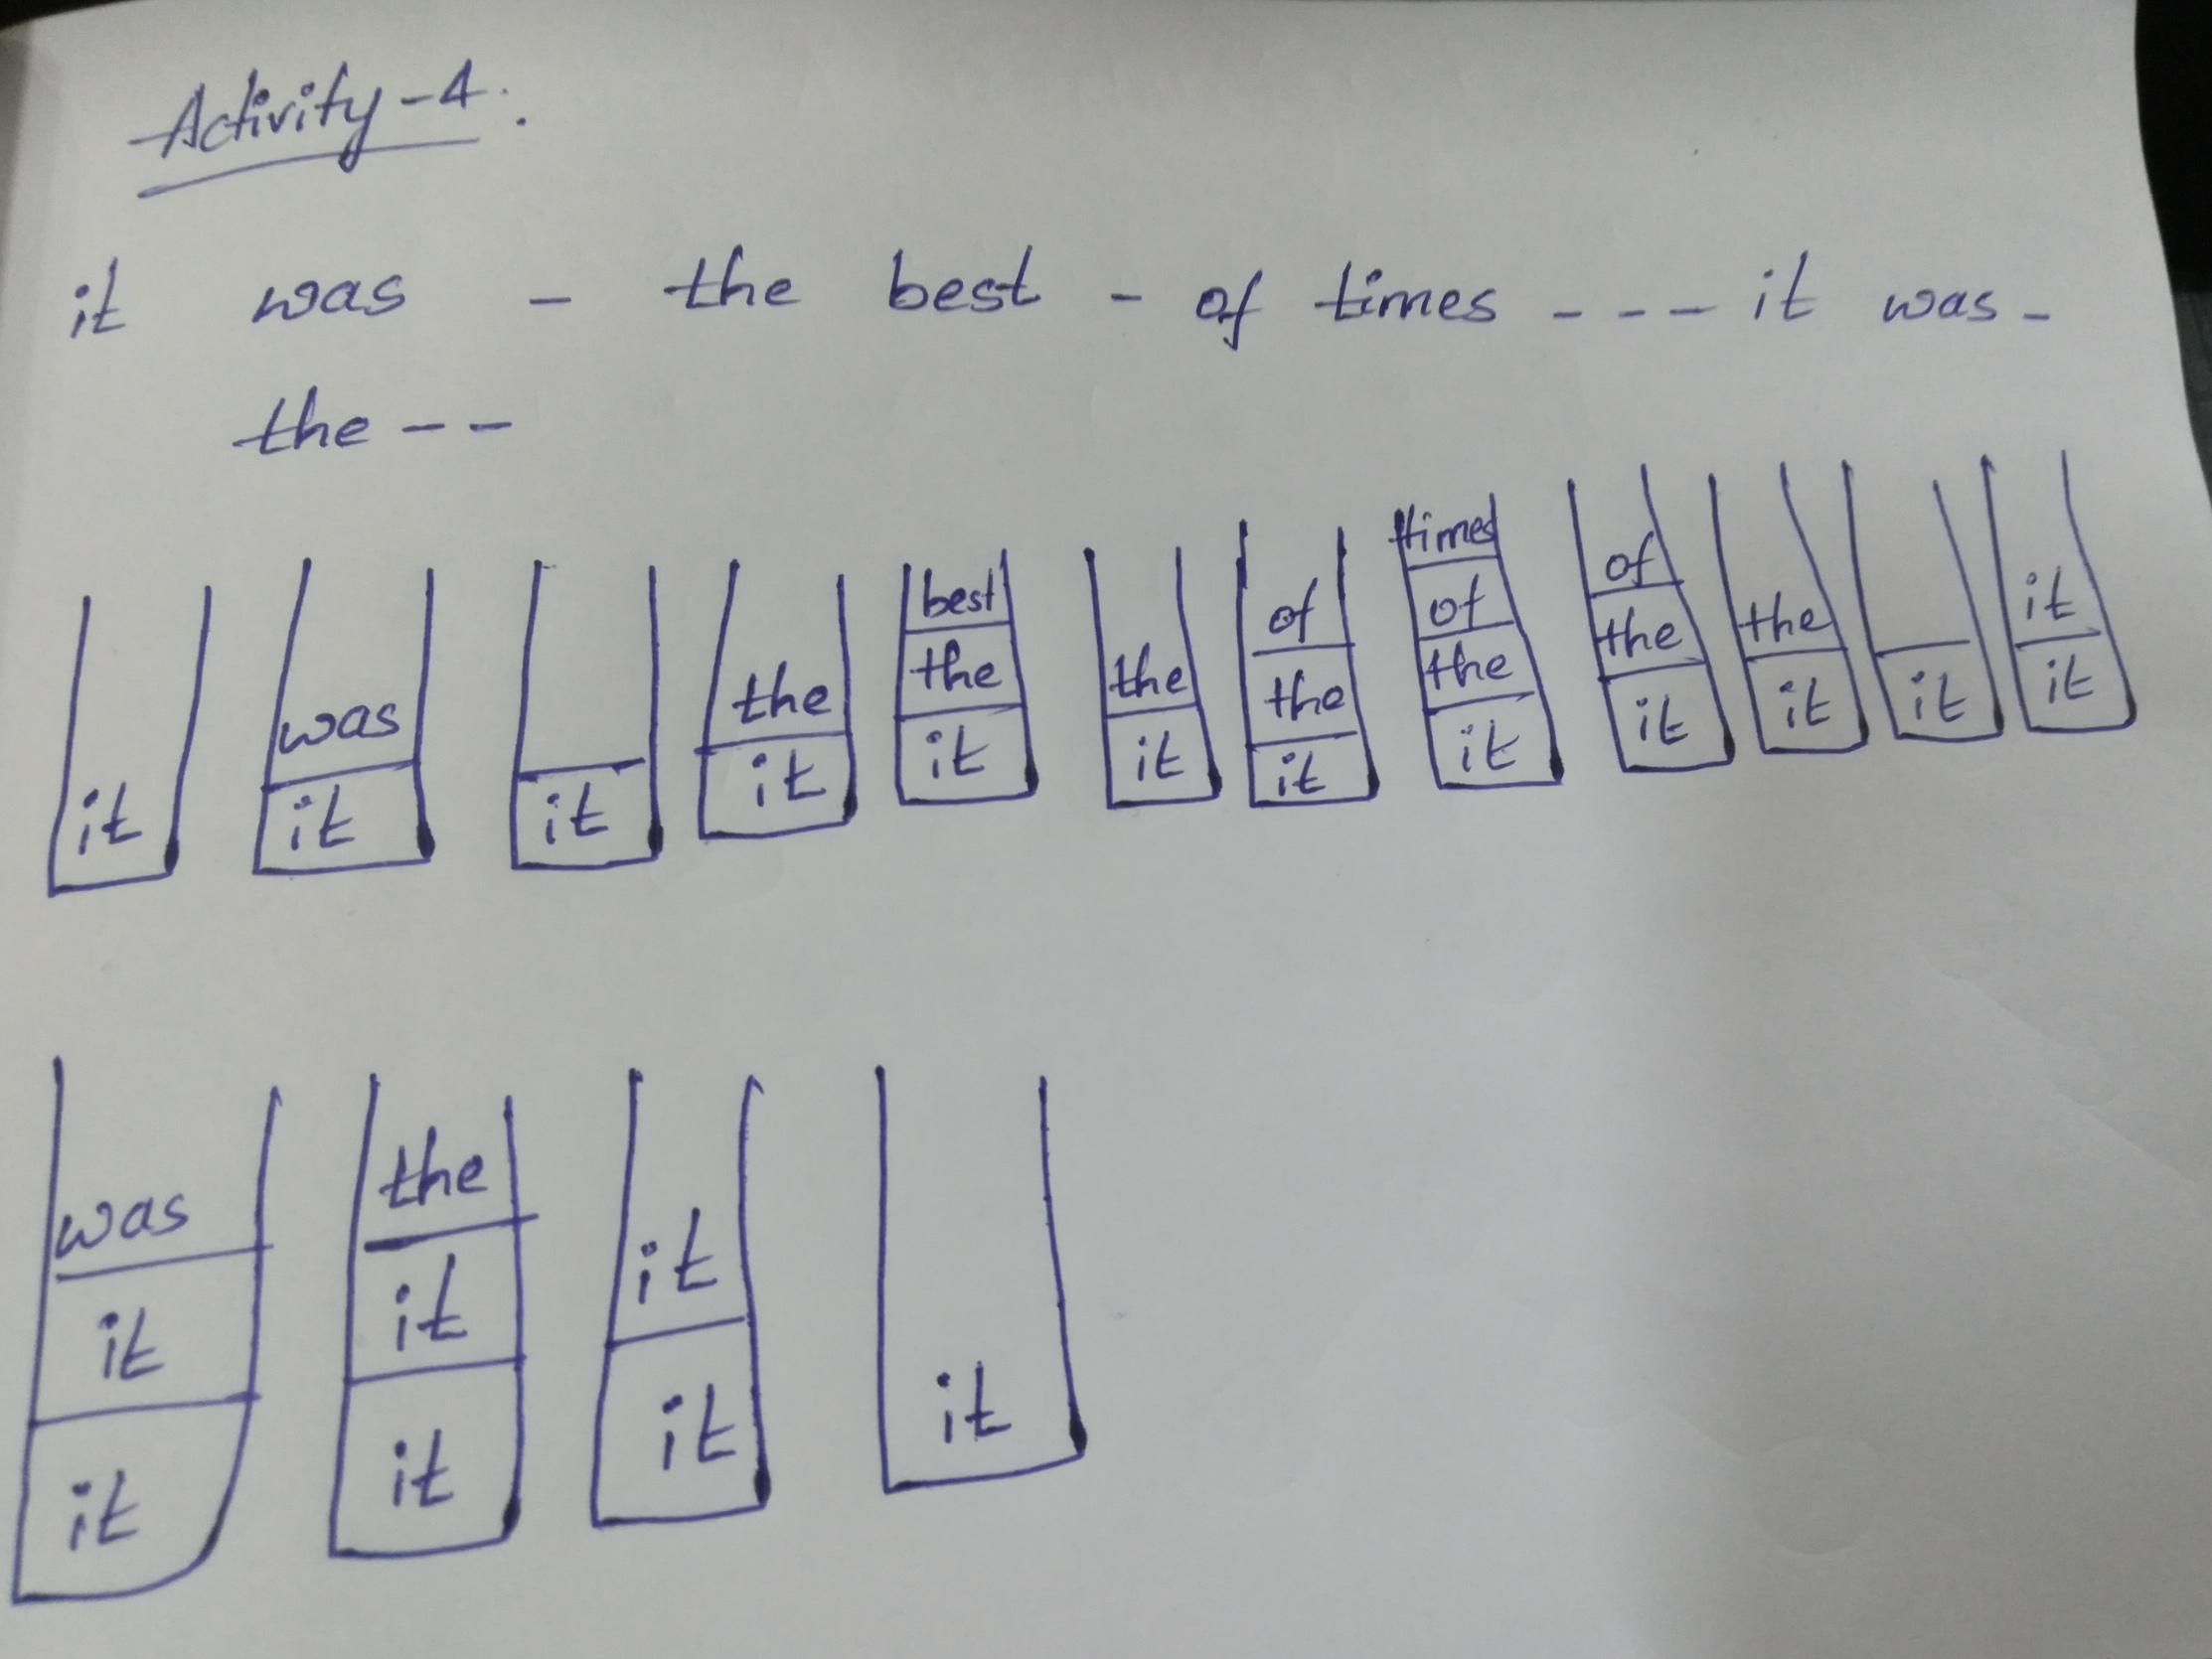 Activity-4:
it was - the best - of times - - - it was -
the - -
it
was
it
it
the
it
best
the
it
the
it
of
the
it
times
of
the
it
of
the
it
the
it
it
it
it
was
it
it
the
it
it
it
it
it